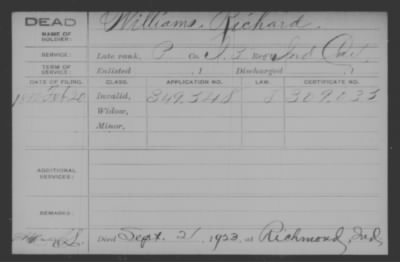 DEAD
Williams, Richard
NAME OF SOLDIER:
SERVICE: Late rank, P. Co. I, 3 Reg't Ind. Cav.
TERM OF SERVICE: Enlisted , 1 Discharged , 1
DATE OF FILING. CLASS. APPLICATION NO. LAW. CERTIFICATE NO.
Feb 20 Invalid, 349,348 309,033
Widow,
Minor,
ADDITIONAL SERVICES:
REMARKS:
Died Sept. 21, 1923, at Richmond, Ind.